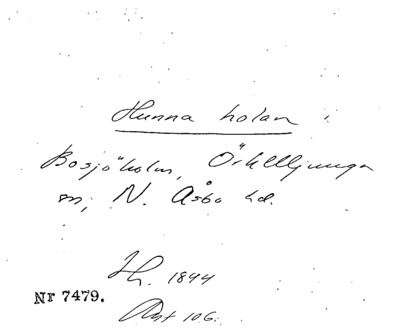 Hunna holan i
Bosjöholm, Örkelljunga
sn, N. Åsbo hd.
1844
Nr 7479.
106.